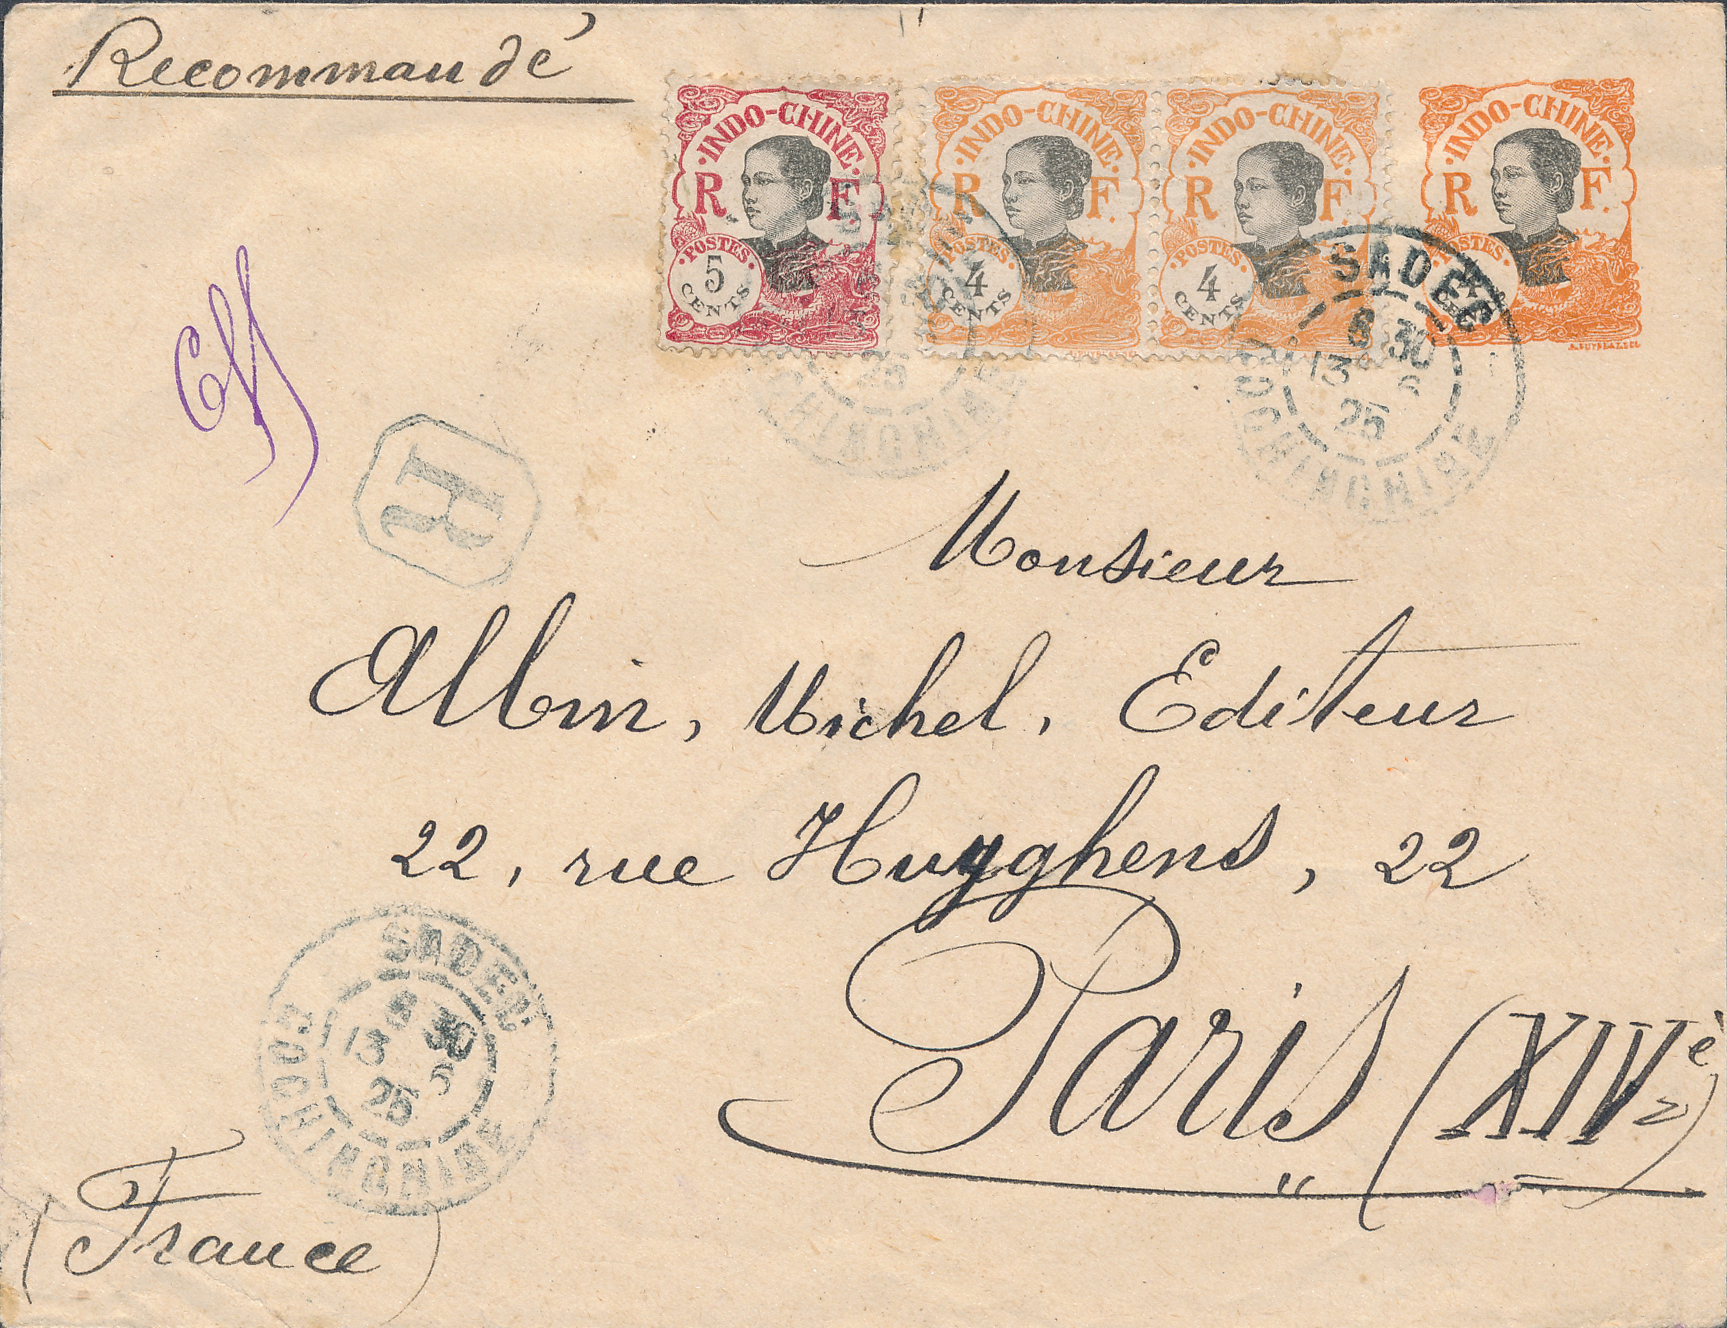 Recommandé
INDO-CHINE
R F.
POSTES
5
CENTS
INDO-CHINE
R F.
POSTES
4
CENTS
INDO-CHINE
R F.
POSTES
4
CENTS
INDO-CHINE
R F.
POSTES
4
CENTS
25
COCHINCHINE
SADEC
8 30
13 6
25
COCHINCHINE
R
Monsieur
Albin, Michel, Editeur
22, rue Huyghens, 22
Paris (XIVè)
SADEC
8 30
13 6
25
COCHINCHINE
(France)